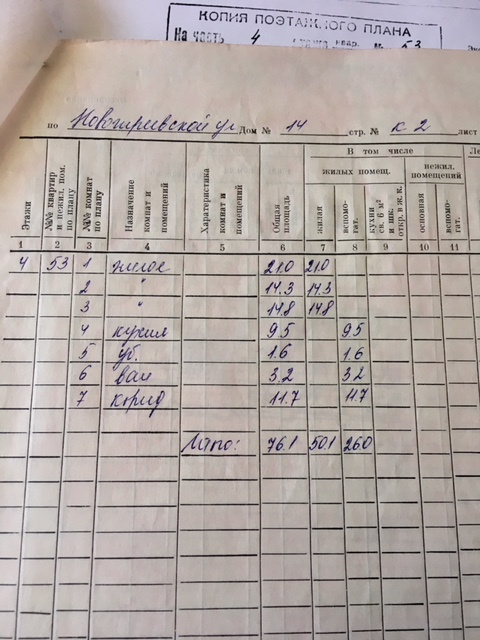 КОПИЯ ПОЭТАЖНОГО ПЛАНА
На часть 4 этажа квар. № 53
по Новогиреевской ул Дом № 14 стр. № к 2 лист
В том числе
жилых помещ. нежил. помещений
Этажи
№№ квартир и нежил. пом. по плану
№№ комнат по плану
Назначение комнат и помещений
Характеристика комнат и помещений
Общая площадь
жилая
вспомо- гат.
кухни св. 6 м² и шк. откр. в ж. к.
основная
вспомо- гат.
1 2 3 4 5 6 7 8 9 10 11
4 53 1 жилое 21.0 21.0
2 " 14.3 14.3
3 " 14.8 14.8
4 кухня 9.5 9.5
5 уб. 1.6 1.6
6 ван 3.2 3.2
7 корид 11.7 11.7
Итого: 76.1 50.1 26.0